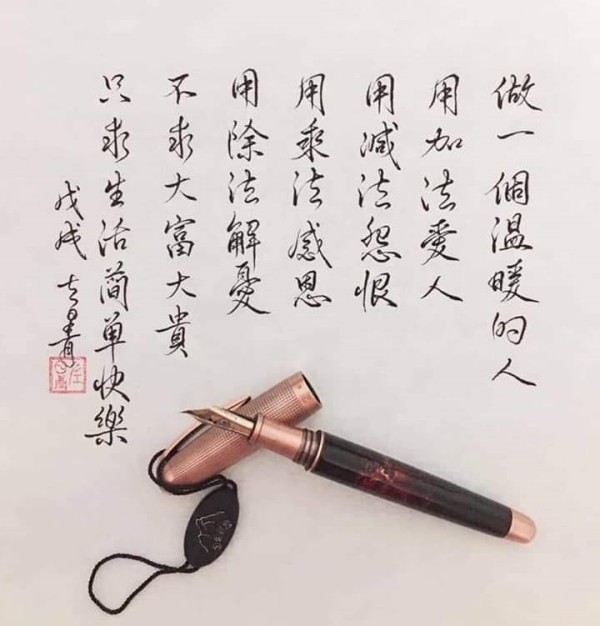 做一個溫暖的人
用加法愛人
用減法怨恨
用乘法感恩
用除法解憂
不求大富大貴
只求生活簡單快樂
戊戌